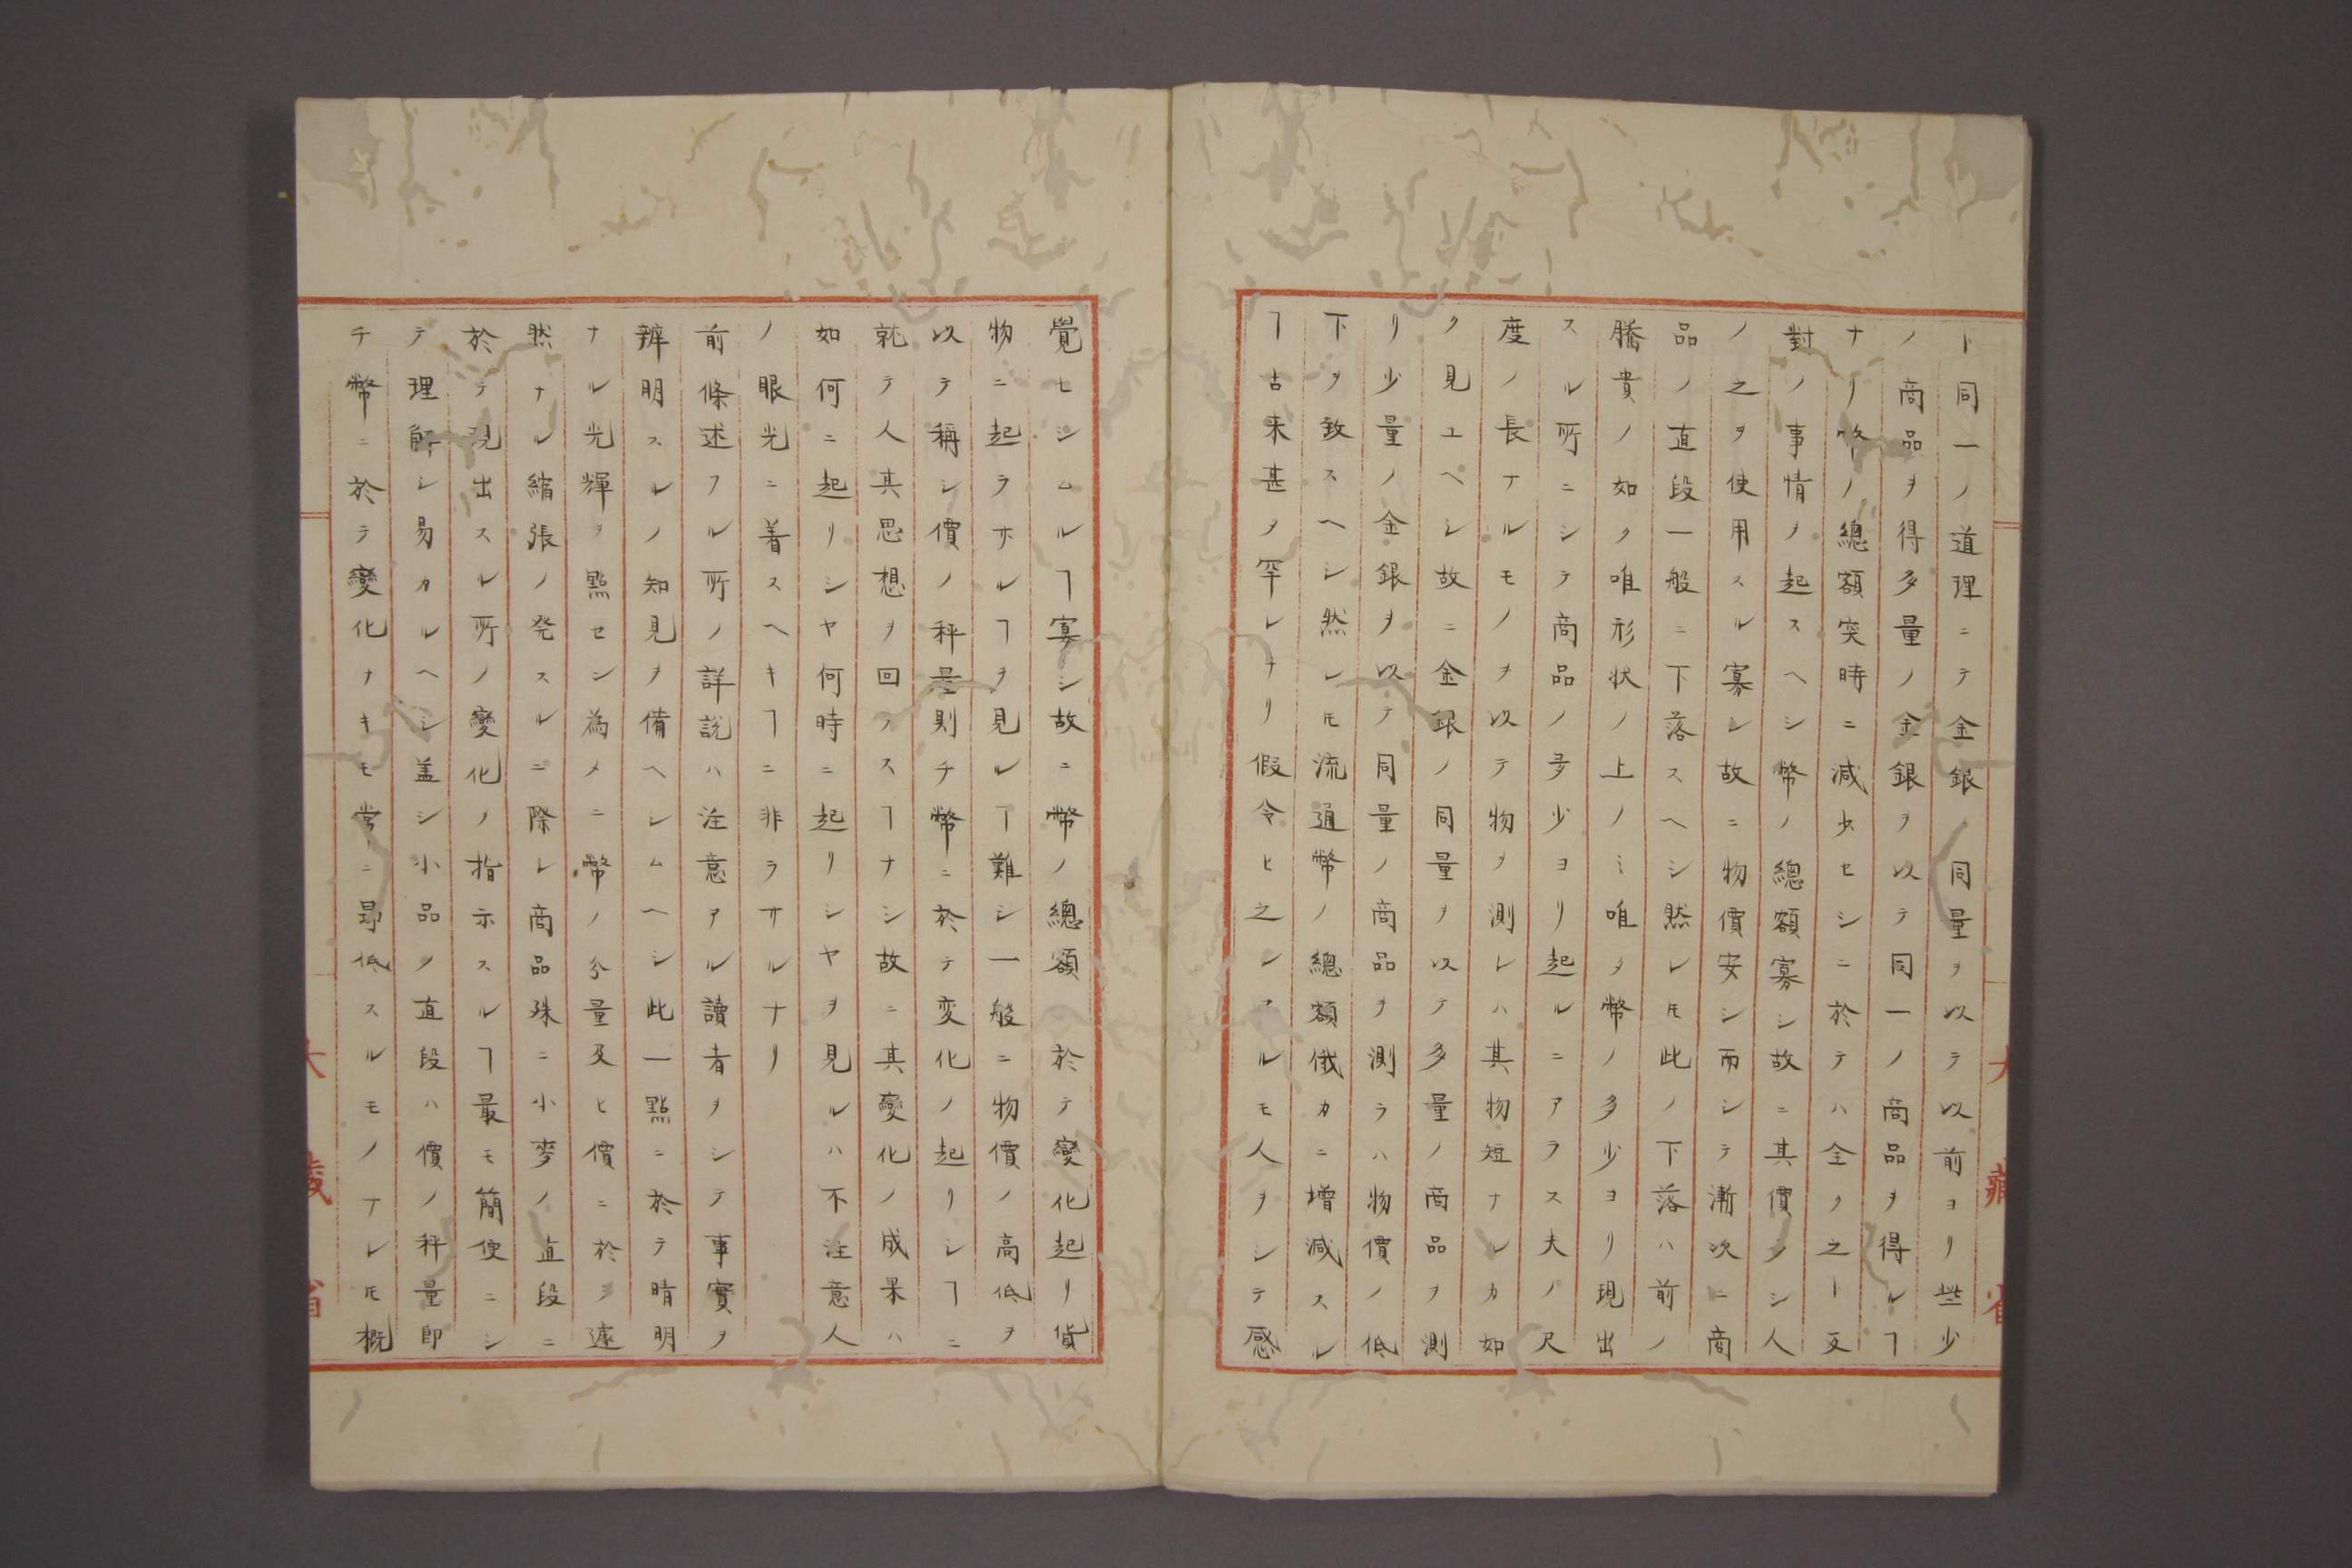 ト同一ノ道理ニテ金銀ノ同量ヲ以テ以前ヨリ些少
ノ商品ヲ得多量ノ金銀ヲ以テ同一ノ商品ヲ得ルヿ
ナリ幣ノ總額突時ニ減少セシニ於テハ全ク之ト反
對ノ事情ヲ起スヘシ幣ノ總額寡シ故ニ其價タシ人
ノ之ヲ使用スル寡シ故ニ物價安シ而シテ漸次ニ商
品ノ直段一般ニ下落スヘシ然レ𪜈此ノ下落ハ前ノ
騰貴ノ如ク唯形状ノ上ノミ唯タ幣ノ多少ヨリ現出
スル所ニシテ商品ノ多少ヨリ起ルニアラス夫ノ尺
度ノ長ナルモノヲ以テ物ヲ測レハ其物短ナレカ如
ク見ユヘシ故ニ金銀ノ同量ヲ以テ多量ノ商品ヲ測
リ少量ノ金銀ヲ以テ同量ノ商品ヲ測ラハ物價ノ低
下ヲ致スヘシ然レ𪜈流通幣ノ總額俄カニ増減スル
ヿ古来甚タ罕レナリ假令ヒ之レアルモ人ヲシテ感
覺セシムルヿ寡シ故ニ幣ノ總額ニ於テ變化起リ貨
物ニ起ラサルヿヲ見ルヿ難シ一般ニ物價ノ高低ヲ
以テ稱シ價ノ秤量則チ幣ニ於テ変化ノ起リシヿニ
就テ人其思想ヲ回ラスヿナシ故ニ其變化ノ成果ハ
如何ニ起リシヤ何時ニ起リシヤヲ見ルハ不注意人
ノ眼光ニ着スヘキヿニ非ラサルナリ
前條述フル所ノ詳説ハ注意アル讀者ヲシテ事實ヲ
辨明スルノ知見ヲ備ヘシムヘシ此一點ニ於テ晴明
ナル光輝ヲ點セン為メニ幣ノ分量及ヒ價ニ於テ遽
然ナル縮張ノ発スルニ際レ商品殊ニ小麥ノ直段ニ
於テ現出スル所ノ變化ノ指示スルヿ最モ簡便ニシ
テ理解シ易カルヘシ盖シ小品ノ直段ハ價ノ秤量即
チ幣ニ於テ變化ナキモ常ニ昻低スルモノナレ𪜈概
大藏省
大藏省